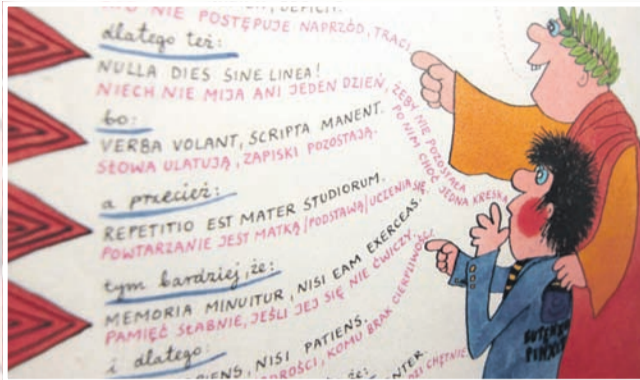 NIE POSTĘPUJE NAPRZÓD, TRACI
dlatego też:
NULLA DIES SINE LINEA!
NIECH NIE MIJA ANI JEDEN DZIEŃ, ŻEBY NIE POZOSTAŁA
PO NIM CHOĆ JEDNA KRESKA
bo:
VERBA VOLANT, SCRIPTA MANENT.
SŁOWA ULATUJĄ, ZAPISKI POZOSTAJĄ.
a przecież:
REPETITIO EST MATER STUDIORUM.
POWTARZANIE JEST MATKĄ/PODSTAWĄ/UCZENIA SIĘ,
tym bardziej, że:
MEMORIA MINUITUR, NISI EAM EXERCEAS.
PAMIĘĆ SŁABNIE, JEŚLI JEJ SIĘ NIE ĆWICZY.
i dlatego:
PIENS, NISI PATIENS.
DROŚCI, KOMU BRAK CIERPLIWOŚCI.
że:
NTER.
CHĘTNIE